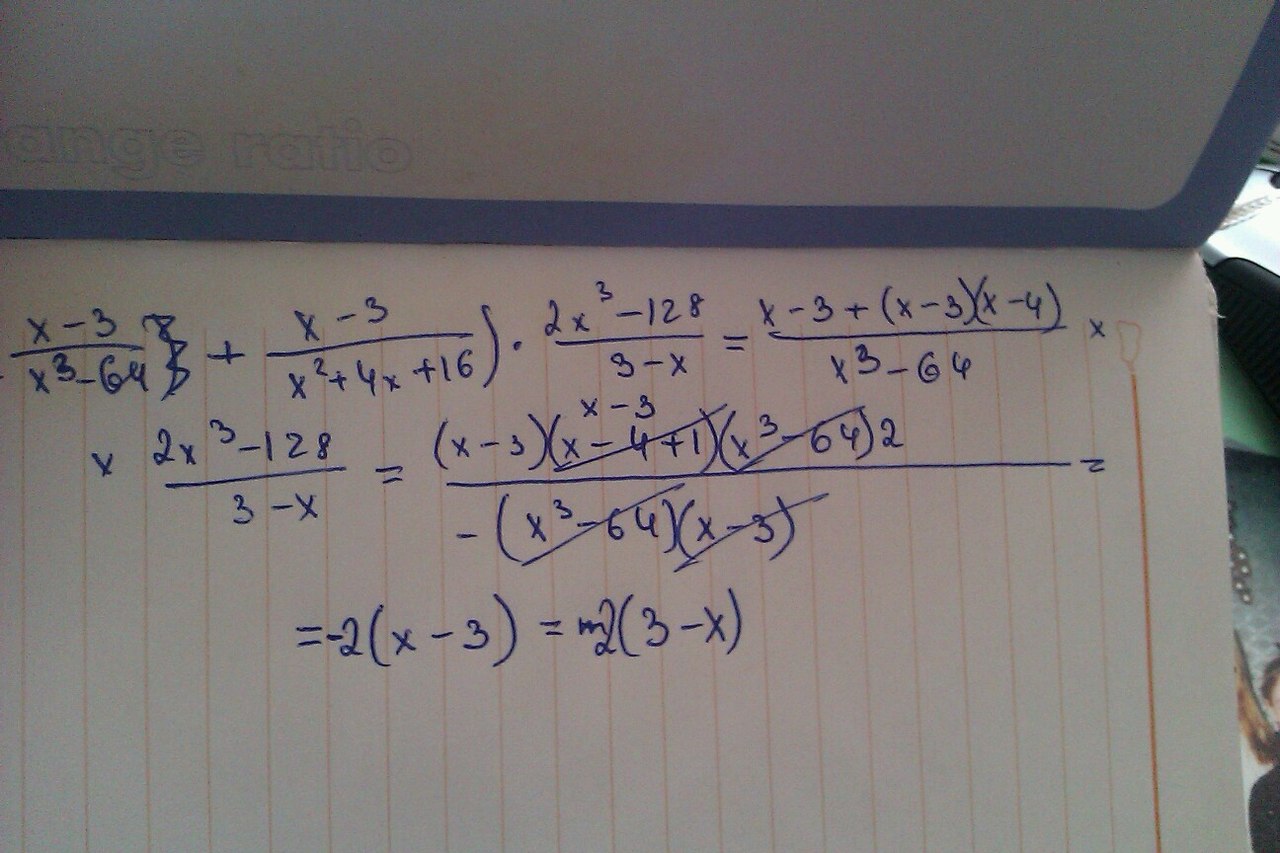 ange ratio
x-3/x³-64 + x-3/x²+4x+16) · 2x³-128/3-x = x-3+(x-3)(x-4)/x³-64 x
x 2x³-128/3-x = (x-3)(x-4+1)(x³-64)2/-(x³-64)(x-3) =
x-3
=-2(x-3) = 2(3-x)